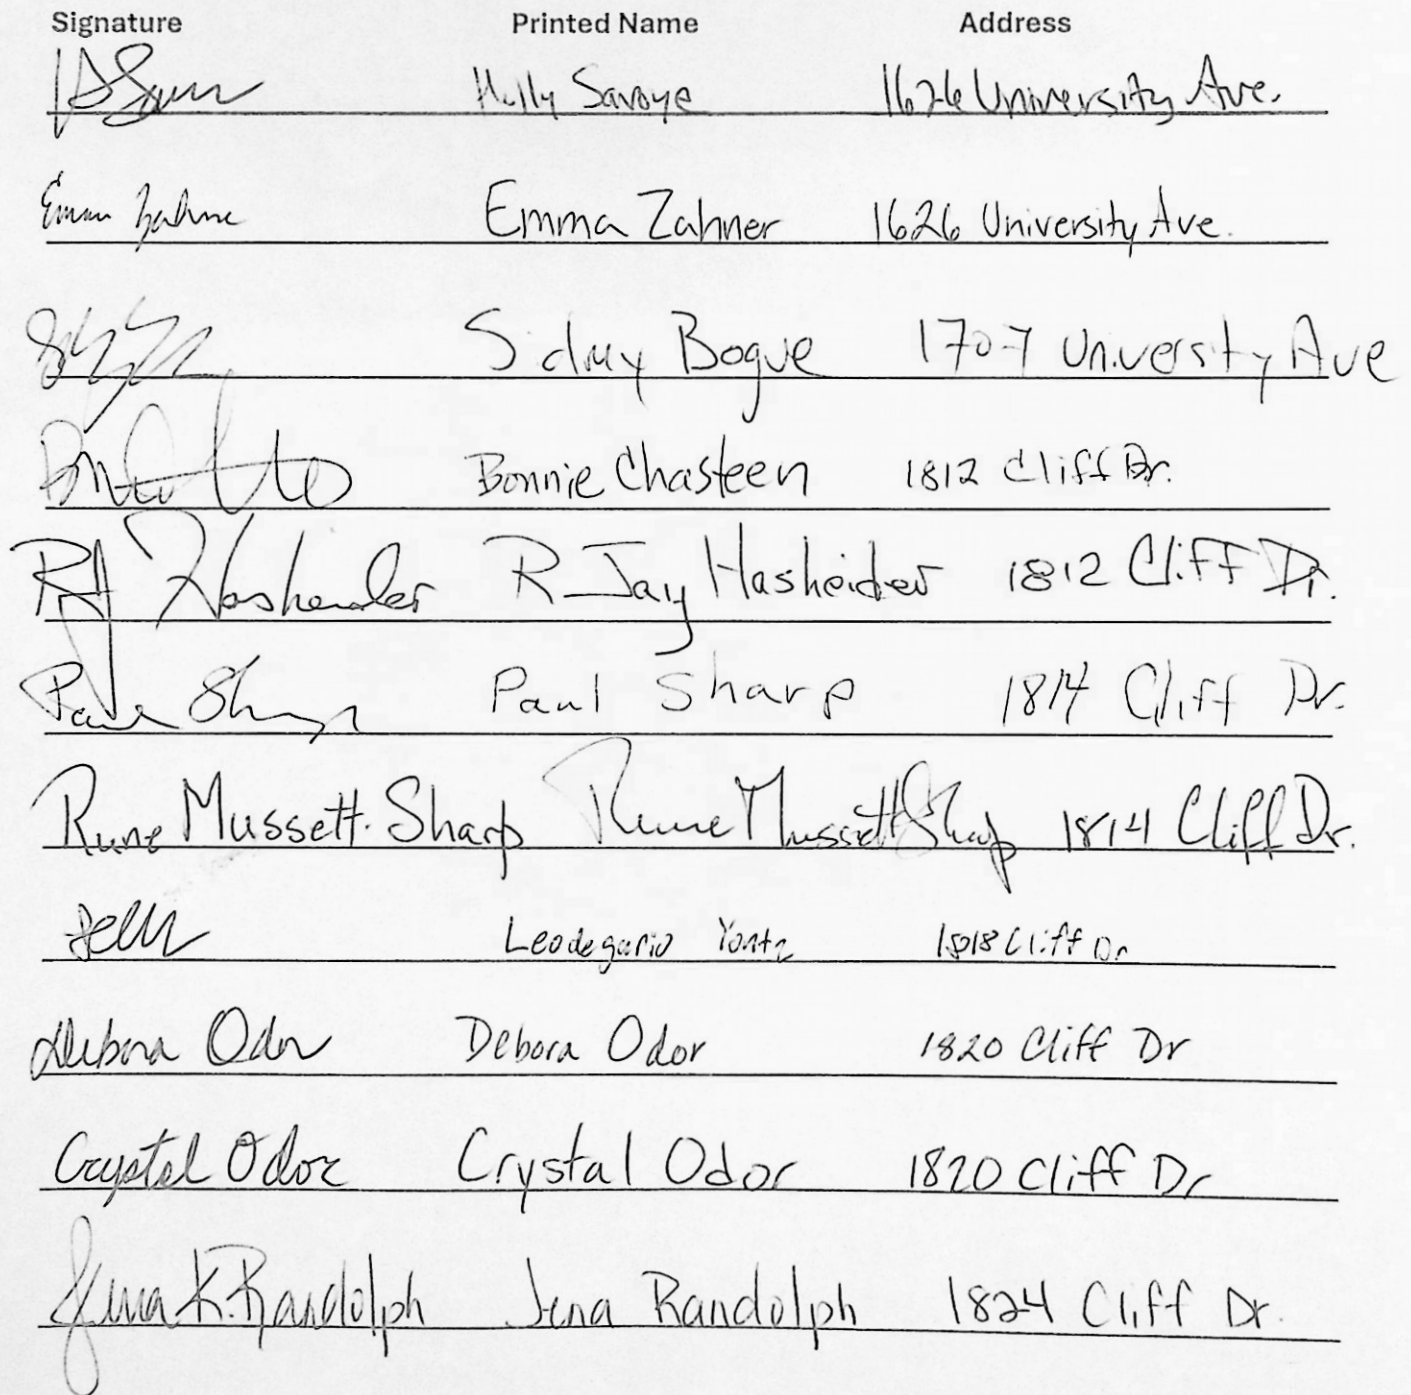 Signature Printed Name Address
Holly Savoye 1626 University Ave.
Emma Zahner Emma Zahner 1626 University Ave.
Sidney Bogue 1707 University Ave
Bonnie Chasteen 1812 Cliff Dr.
RJ Hasheider R Jay Hasheider 1812 Cliff Dr.
Paul Sharp Paul Sharp 1814 Cliff Dr.
Rune Mussett-Sharp Rune Mussett Sharp 1814 Cliff Dr.
Leodegario Yontz 1818 Cliff Dr
Debora Odor Debora Odor 1820 Cliff Dr
Crystal Odor Crystal Odor 1820 Cliff Dr
Jena K. Randolph Jena Randolph 1824 Cliff Dr.